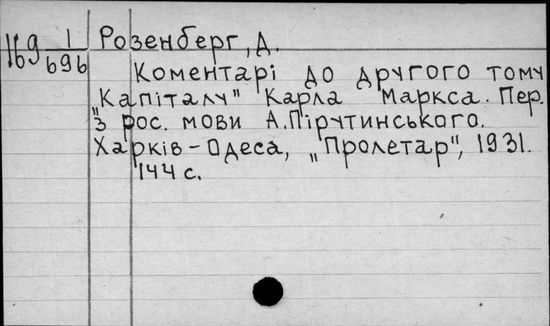 169 1/696
Розенберг, Д.
Коментарі до другого тому
„Капіталу" Карла Маркса. Пер.
з рос. мови А.Пірутинського.
Харків-Одеса, „Пролетар", 1931.
144 с.